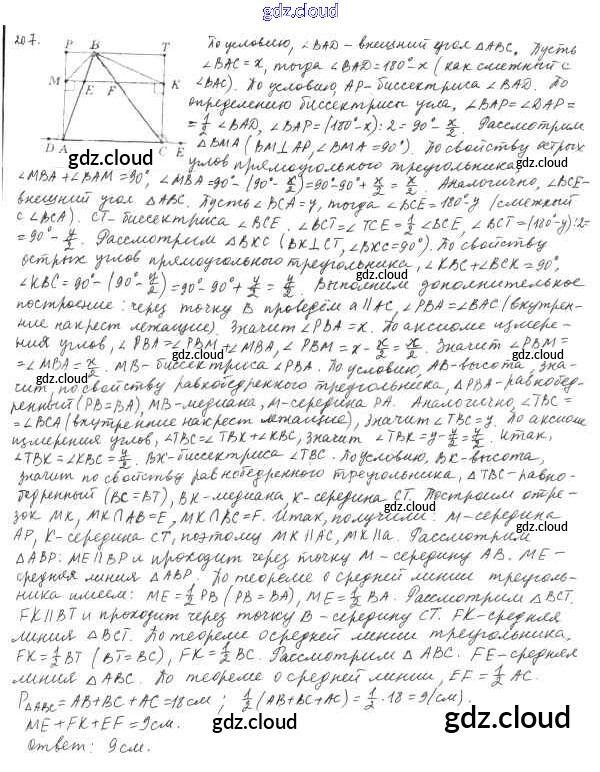 gdz.cloud
207.
P B T
M E F K
D A C E
По условию, ∠BAD – внешний угол △ABC. Пусть
∠BAC = x, тогда ∠BAD = 180° - x (как смежный с
∠BAC). По условию, AP - биссектриса ∠BAD. По
определению биссектрисы угла, ∠BAP = ∠DAP =
= 1/2 ∠BAD, ∠BAP = (180° - x) : 2 = 90° - x/2. Рассмотрим
△BMA (BM⊥AP, ∠BMA = 90°). По свойству острых
gdz.cloud gdz.cloud
углов прямоугольного треугольника,
∠MBA + ∠BAM = 90°, ∠MBA = 90° - (90° - x/2) = 90° - 90° + x/2 = x/2. Аналогично, ∠BCE -
внешний угол △ABC. Пусть ∠BCA = y, тогда ∠BCE = 180° - y (смежный
с ∠BCA). CT - биссектриса ∠BCE. ∠BCT = ∠TCE = 1/2 ∠BCE, ∠BCT = (180° - y) : 2 =
= 90° - y/2. Рассмотрим △BKC (BK⊥CT, ∠BKC = 90°). По свойству
острых углов прямоугольного треугольника, ∠KBC + ∠BCK = 90°,
gdz.cloud
∠KBC = 90° - (90° - y/2) = 90° - 90° + y/2 = y/2. Выполним дополнительное
построение: через точку B проведём a || AC, ∠PBA = ∠BAC (внутрен-
ние накрест лежащие). Значит ∠PBA = x. По аксиоме измере-
ния углов, ∠PBA = ∠PBM + ∠MBA, ∠PBM = x - x/2 = x/2. Значит ∠PBM =
gdz.cloud
= ∠MBA = x/2. MB - биссектриса ∠PBA. По условию, AB - высота, зна-
gdz.cloud gdz.cloud
чит, по свойству равнобедренного треугольника, △PBA - равнобед-
ренный (PB = BA), MB - медиана, M - середина PA. Аналогично, ∠TBC =
= ∠BCA (внутренние накрест лежащие), значит ∠TBC = y. По аксиоме
измерения углов, ∠TBC = ∠TBK + ∠KBC, значит ∠TBK = y - y/2 = y/2. Итак,
∠TBK = ∠KBC = y/2. BK - биссектриса ∠TBC. По условию, BK - высота,
gdz.cloud
значит по свойству равнобедренного треугольника, △TBC - равно-
бедренный (BC = BT), BK - медиана, K - середина CT. Построим отре-
зок MK, MK∩AB = E, MK∩BC = F. Итак, получили: M - середина
gdz.cloud gdz.cloud
AP, K - середина CT, поэтому MK || AC, MK || a. Рассмотрим
△ABP: ME || BP и проходит через точку M - середину AB. ME -
средняя линия △ABP. По теореме о средней линии треуголь-
ника имеем: ME = 1/2 PB (PB = BA), ME = 1/2 BA. Рассмотрим △BCT.
FK || BT и проходит через точку B - середину CT. FK - средняя
линия △BCT. По теореме о средней линии треугольника,
FK = 1/2 BT (BT = BC), FK = 1/2 BC. Рассмотрим △ABC. FE - средняя
gdz.cloud gdz.cloud
линия △ABC. По теореме о средней линии, EF = 1/2 AC.
P△ABC = AB + BC + AC = 18 см; 1/2 (AB + BC + AC) = 1/2 · 18 = 9 (см).
ME + FK + EF = 9 см.
gdz.cloud gdz.cloud
Ответ: 9 см.